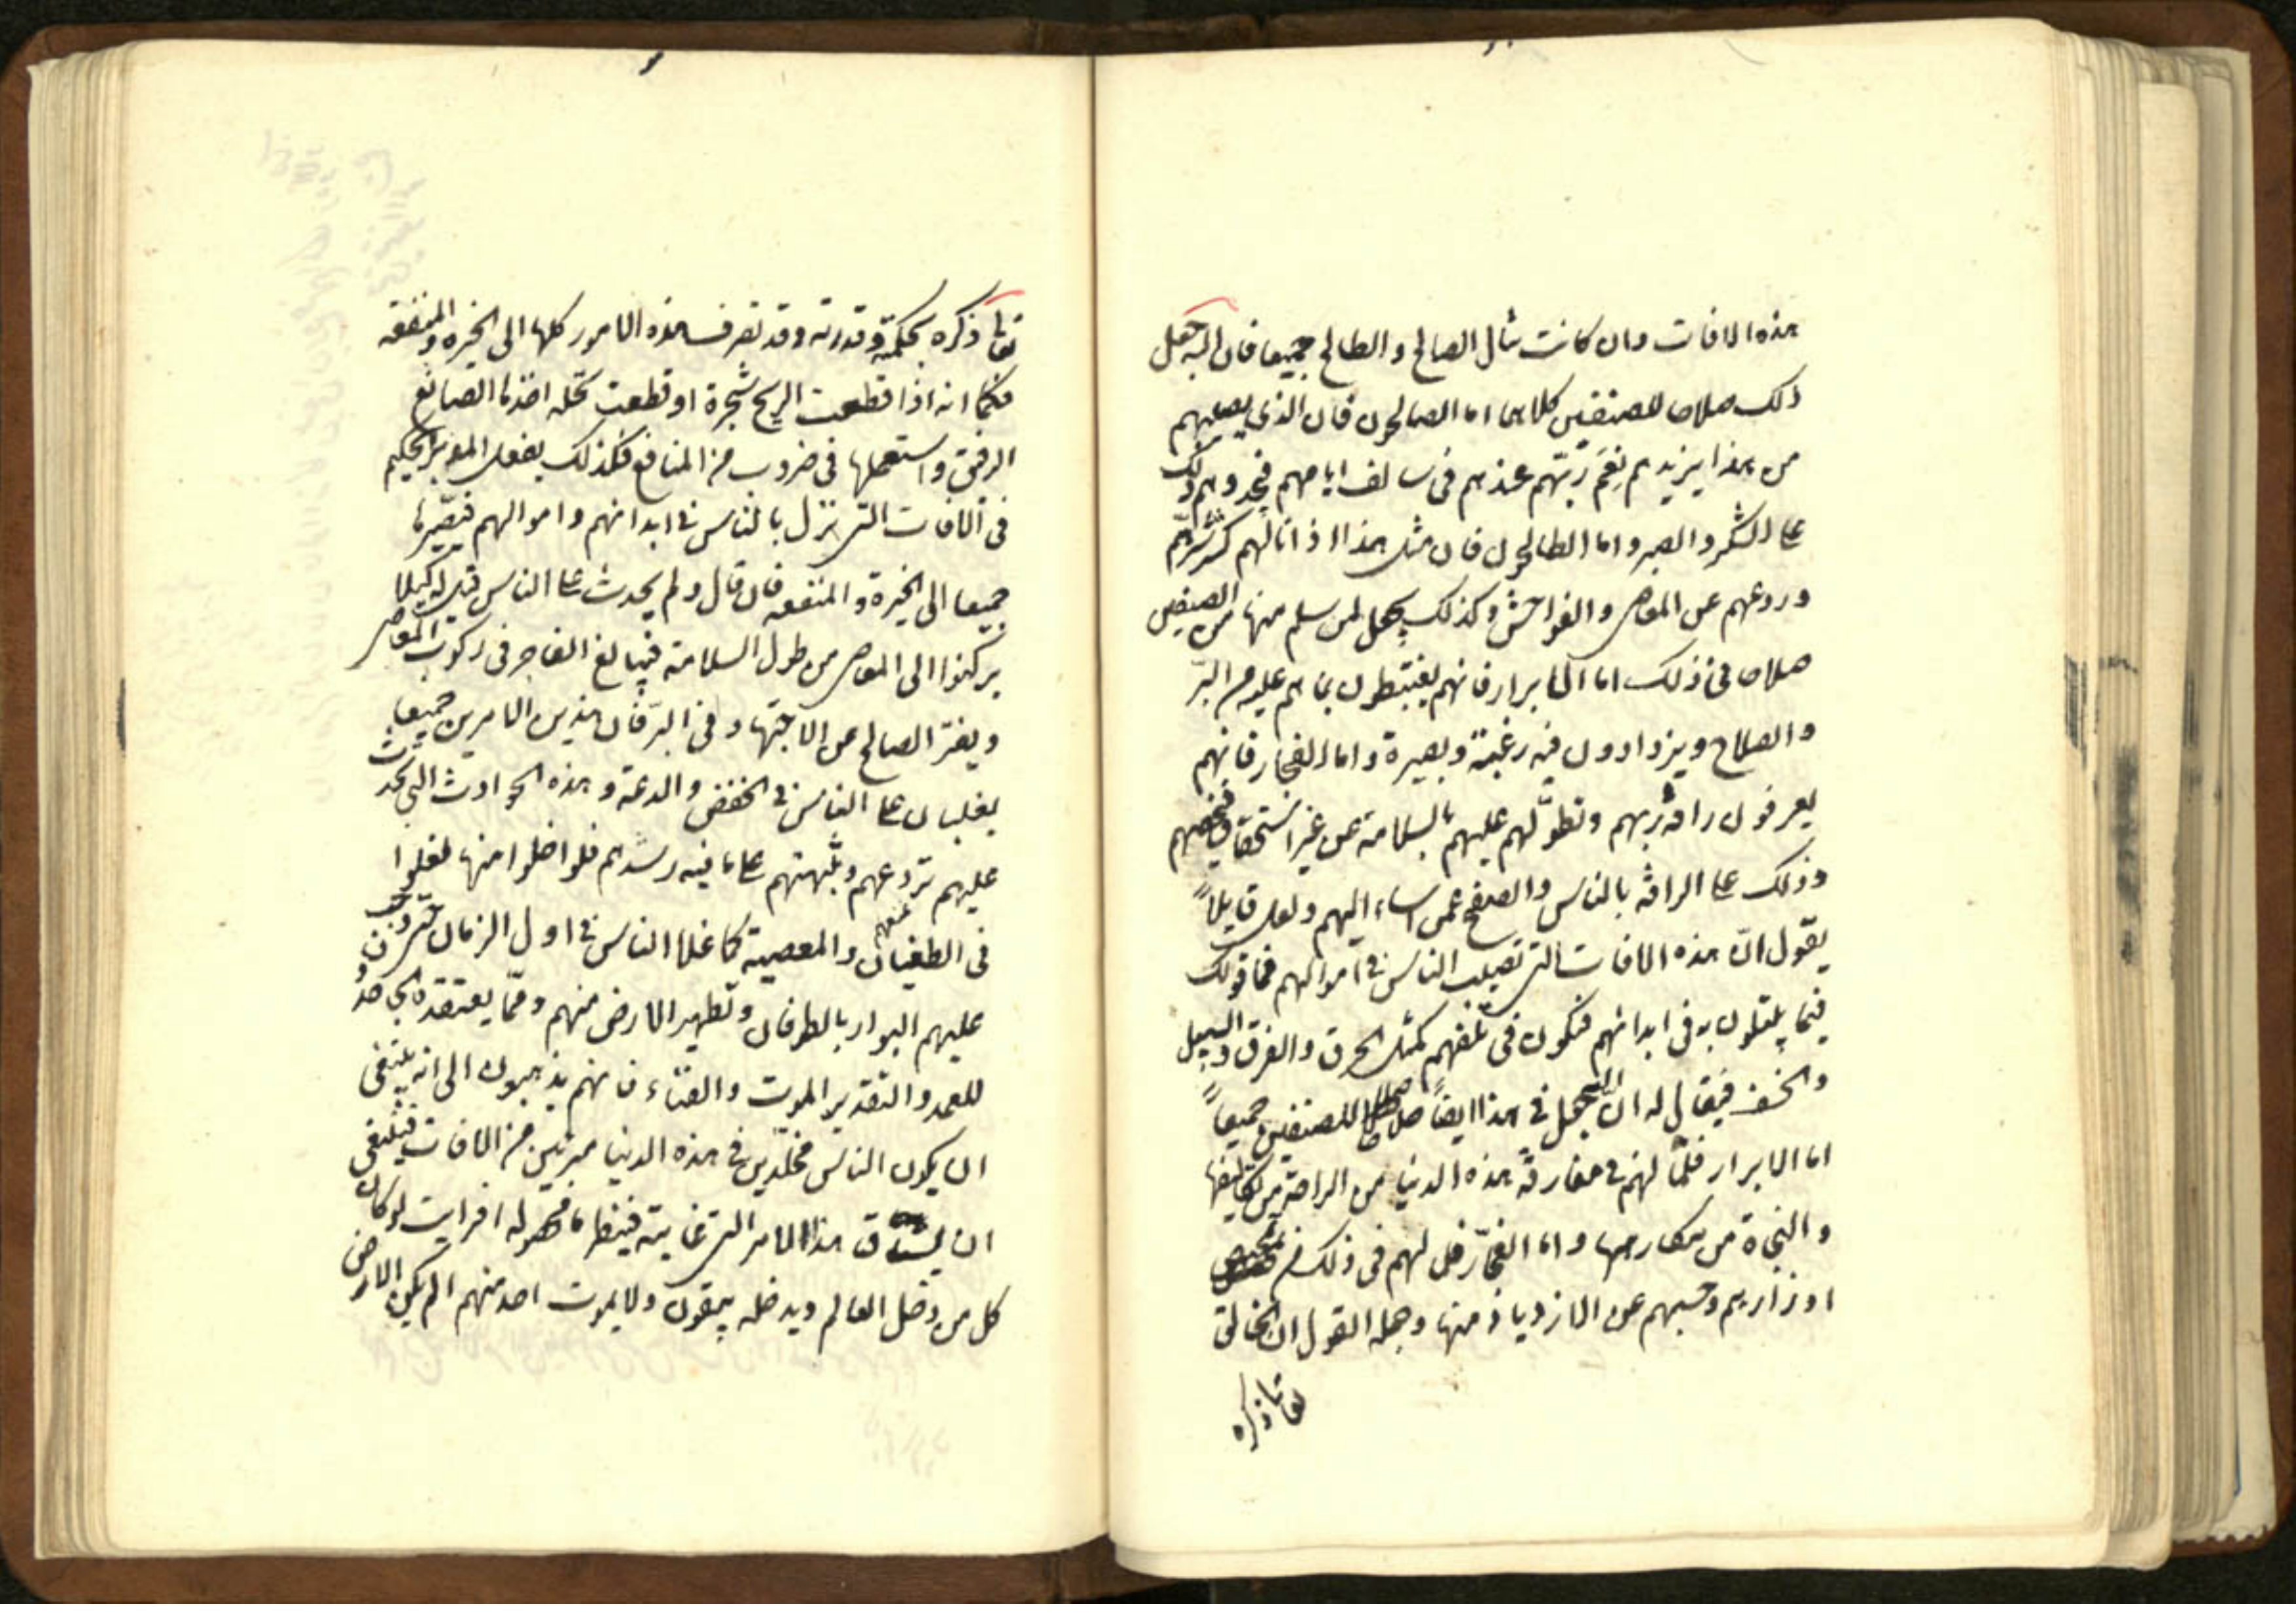 هذه الافات وان كانت تنال الصالح والطالح جميعا فان الله جعل
ذلك صلاحا للصنفين كلاهما اما الصالحون فان الذي يصيبهم
من هذا يزيدهم نعم ربهم عندهم في سالف ايامهم فيحدوهم ذلك
على الشكر والصبر واما الطالحون فان مثل هذا اذا نالهم كسر شرتهم
وردعهم عن المعاصي والفواحش وكذلك يجعل لمن سلم منها من الصنفين
صلاحا في ذلك اما الابرار فانهم يغتبطون بما هم عليه من البرّ
والصلاح ويزدادون فيه رغبة وبصيرة واما الفجار فانهم
يعرفون رافة ربهم وتطوّلهم عليهم بالسلامة من غير استحقاق فيحضهم
وذلك على الرافة بالناس والصفح عمن اساء اليهم ولعل قايلاً
يقول انّ هذه الافات التي تصيب الناس في اموالهم فما قولك
فيما يبتلون به في ابدانهم فتكون في تلفهم كمثل الحرق والغرق والسيل
والخسف فيقال له ان الله يجعل في هذا ايضاً صلاحا للصنفين جميعاً
اما الابرار فلمّا لهم في مفارقة هذه الدنيا من الراحة من تكاليفها
والنجاة من مكارهها واما الفجّار فلما لهم في ذلك من تمحيص
اوزارهم وحبسهم عن الازدياد منها وجملة القول ان الخالق
تعالى ذكره
تعالى ذكره بحكمته وقدرته وقد تصرف هذه الامور كلها الى الخيره والمنفعه
فكما انه اذا قطعت الريح شجرة او قطعت نخله اخذها الصانع
الرفيق واستعملها في ضروب من المنافع فكذلك يفعل المدبر الحكيم
في الافات التي تنزل بالناس في ابدانهم واموالهم فيصيّرها
جميعا الى الخيرة والمنفعه فان قال ولم يحدث على الناس قيل له كيلا
يركنوا الى المعاصي من طول السلامة فيبالغ الفاجر في ركوب المعاصي
ويفتر الصالح عن الاجتهاد في البرّ فان هذين الامرين جميعا
يغلبان على الناس في الخفض والدعة وهذه الحوادث التي تحدث
عليهم تردعهم وتنبههم على ما فيه رشدهم فلو اخلوا منها لغلوا
في الطغيان والمعصية كما غلا الناس في اول الزمان حتى وجب
عليهم البوار بالطوفان وتطهير الارض منهم وممّا يعتقده الجاحدون
للعمد والتقدير الموت والفناء فانهم يذهبون الى انه ينبغي
ان يكون الناس مخلّدين في هذه الدنيا مبرئين من الافات فينبغي
ان يساق هذا الامر الى غايته فينظر ما محصوله افرايت لو كان
كل من دخل العالم ويدخله يبقون ولا يموت احد منهم الم يكن الارض